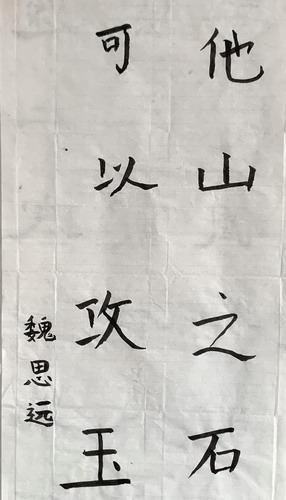 他山之石
可以攻玉
魏思远